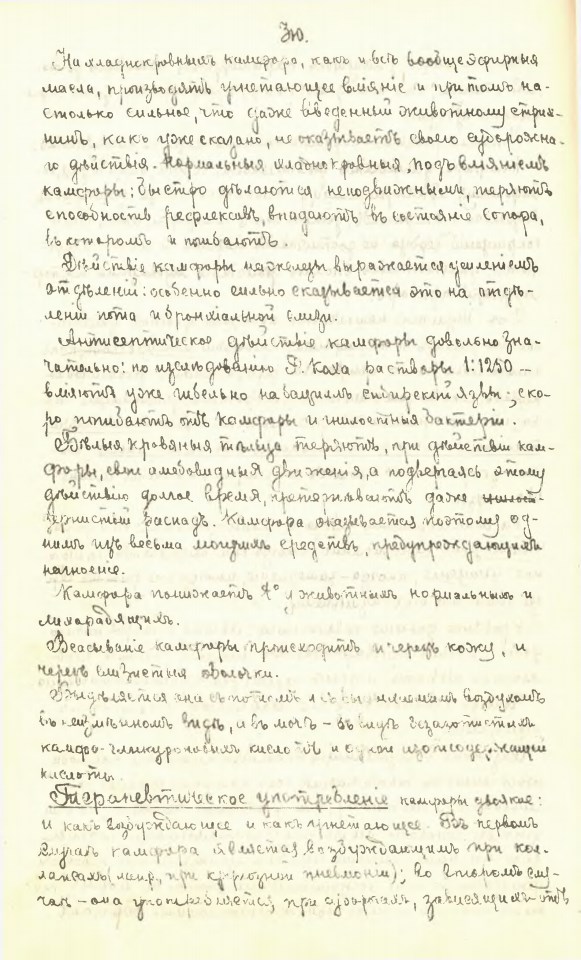 310.
На хладнокровныхъ камфора, какъ и всѣ вообще эфирныя
масла, производятъ угнетающее вліяніе и притомъ на-
столько сильное, что даже введенный животному стрих-
нинъ, какъ уже сказано, не оказываетъ своего судорожна-
го дѣйствія. Нормальныя хладнокровныя, подъ вліяніемъ
камфоры; быстро дѣлаются неподвижными, теряютъ
способность рефлексовъ, впадаютъ въ состояніе сопора,
въ которомъ и погибаютъ.
Дѣйствіе камфоры на железы выражается усиленіемъ
отдѣленій: особенно сильно сказывается это на отдѣ-
леніи пота и бронхіальной слизи.
Антисептическое дѣйствіе камфоры довольно зна-
чительно: по изслѣдованію Р. Коха растворы 1:1250 —
вліяютъ уже гибельно на бациллъ сибирской язвы; ско-
ро погибаютъ отъ камфоры и гнилостныя бактеріи.
Бѣлыя кровяныя тѣльца теряютъ, при дѣйствіи кам-
форы, свои амебовидныя движенія, а подвергаясь этому
дѣйствію долгое время, претерпѣваютъ даже
зернистый распадъ. Камфора оказывается поэтому од-
нимъ изъ весьма могучихъ средствъ, предупреждающихъ
нагноеніе.
Камфора понижаетъ t° у животныхъ нормальныхъ и
лихорадящихъ.
Всасываніе камфоры происходитъ и черезъ кожу, и
черезъ слизистыя оболочки.
Выдѣляется она съ потомъ и съ выдыхаемымъ воздухомъ
въ неизмѣнномъ видѣ, а въ мочѣ — въ видѣ азотистыхъ
камфо-гликуроновыхъ кислотъ и одной азотсодержащей
кислоты.
Терапевтическое употребленіе камфоры двоякое:
и какъ возбуждающее и какъ угнетающее. Въ первомъ
случаѣ камфора является возбуждающимъ при кол-
лапсахъ (напр. при крупозной пневмоніи); во второмъ слу-
чаѣ — она употребляется при судорогахъ, зависящихъ отъ